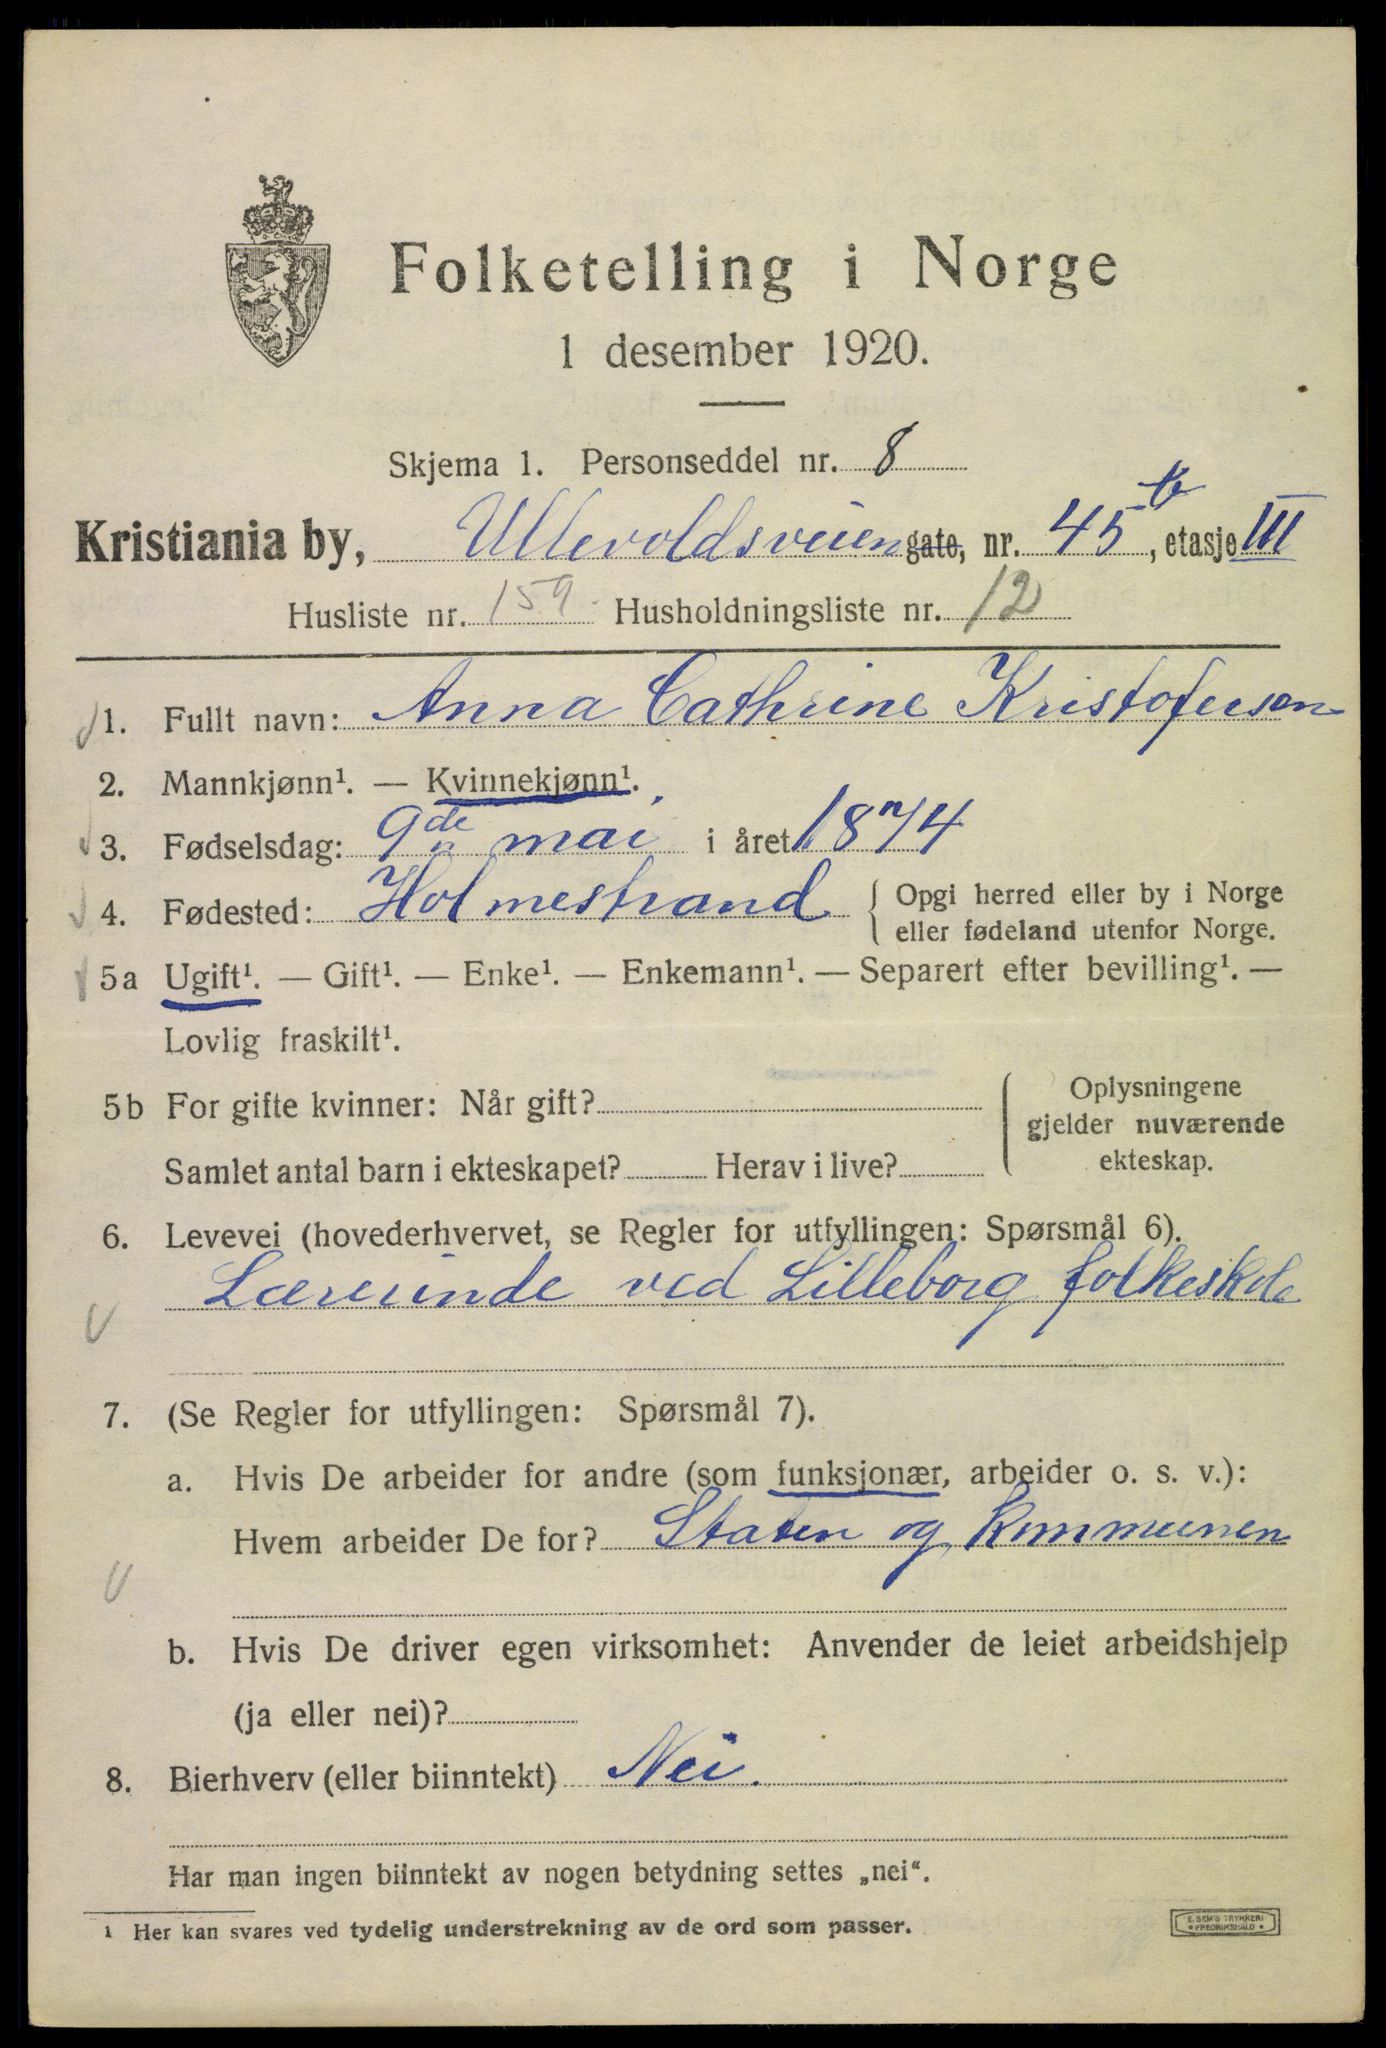 Folketelling i Norge
1 desember 1920.
Skjema 1. Personseddel nr. 8
Kristiania by, Ullevoldsveien gate, nr. 45 b, etasje III
Husliste nr. 159. Husholdningsliste nr. 12
1. Fullt navn: Anna Cathrine Kristofersen
2. Mannkjønn¹. — Kvinnekjønn¹.
3. Fødselsdag: 9de mai i året 1874
4. Fødested: Holmestrand { Opgi herred eller by i Norge
eller fødeland utenfor Norge.
5a Ugift¹. — Gift¹. — Enke¹. — Enkemann¹. — Separert efter bevilling¹. —
Lovlig fraskilt¹.
5b For gifte kvinner: Når gift? Oplysningene
gjelder nuværende
Samlet antal barn i ekteskapet? Herav i live? ekteskap.
6. Levevei (hovederhvervet, se Regler for utfyllingen: Spørsmål 6).
Lærerinde ved Lilleborg folkeskole
7. (Se Regler for utfyllingen: Spørsmål 7).
a. Hvis De arbeider for andre (som funksjonær, arbeider o. s. v.):
Hvem arbeider De for? Staten og kommunen
b. Hvis De driver egen virksomhet: Anvender de leiet arbeidshjelp
(ja eller nei)?
8. Bierhverv (eller biinntekt) Nei.
Har man ingen biinntekt av nogen betydning settes „nei“.
1 Her kan svares ved tydelig understrekning av de ord som passer.
E. SEM'S TRYKKERI
* FREDRIKSHALD *